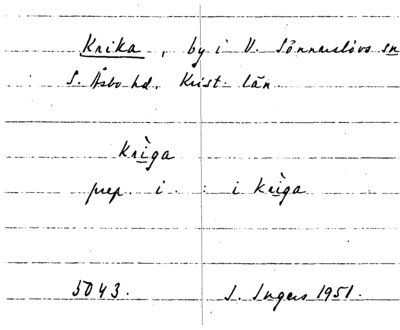 Krika, by i V. Sönnarslövs sn
S. Åsbo hd. Krist. län
krìga
prep. i : i krìga
5043. I. Ingers 1951.